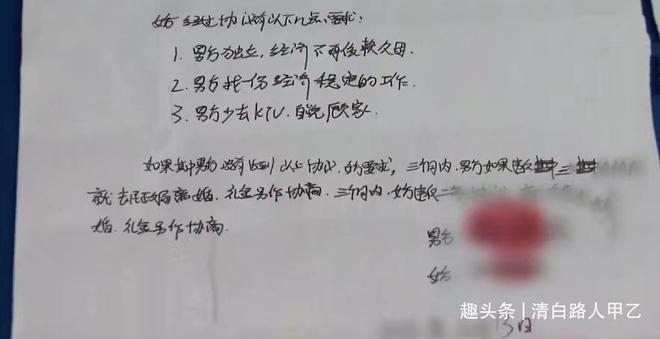 女方经过协议有以下几点要求:
1. 男方独立,经济不再依赖父母.
2. 男方找一份经济稳定的工作.
3. 男方少去KTV,自觉顾家.
如果其中男方没有达到以上协议,女方要求,三个月内.男方如果违反
就去民政局离婚.礼金另作协商.三个月内.女方违反
婚.礼金另作协商.
男方
女方
日
趣头条 | 清白路人甲乙